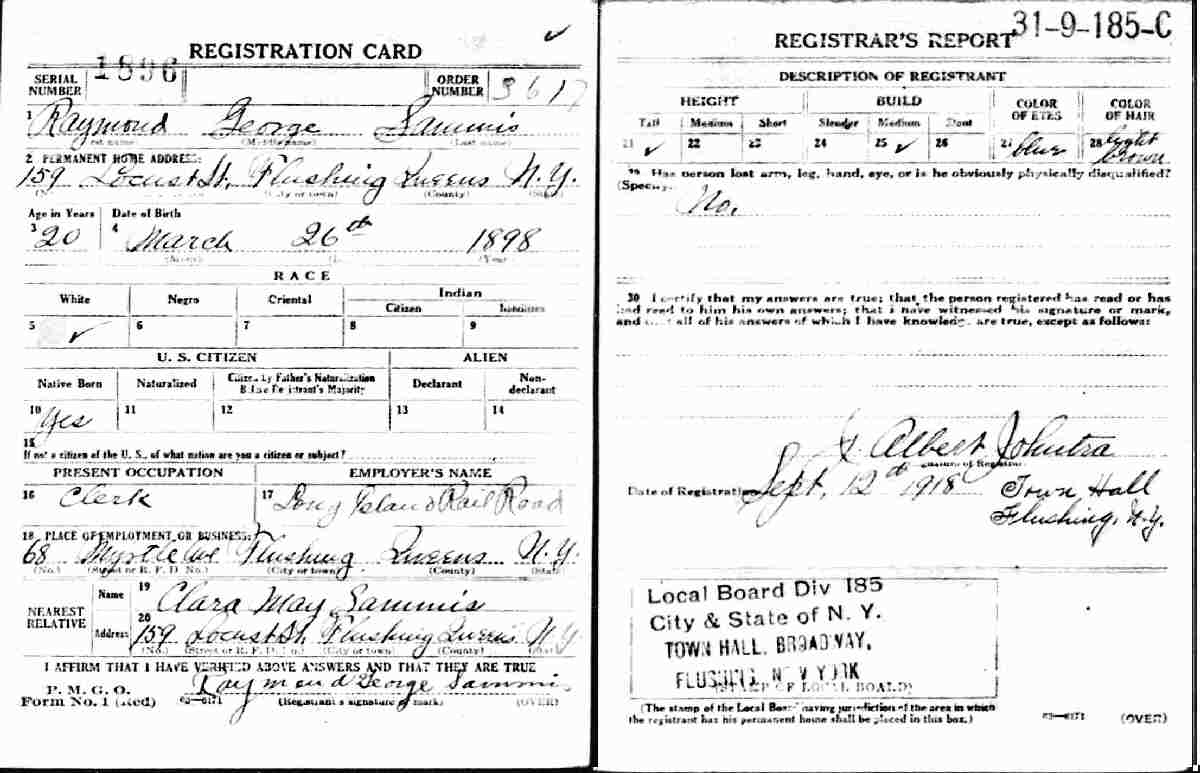 REGISTRATION CARD
SERIAL NUMBER 1896 ORDER NUMBER 3617
1 Raymond George Sammis
(Middle name) (Last name)
2 PERMANENT HOME ADDRESS:
159 Locust St. Flushing Queens N.Y.
(City or town) (County) (State)
Age in Years Date of Birth
3 20 4 March 26th 1898
(Month) (Year
RACE
White Negro Oriental Indian
Citizen
5 ✓ 6 7 8 9
U. S. CITIZEN ALIEN
Native Born Naturalized Citizen by Father's Naturalization Before Registrant's Majority Declarant Non-declarant
10 Yes 11 12 13 14
15
If not a citizen of the U. S., of what nation are you a citizen or subject?
PRESENT OCCUPATION EMPLOYER'S NAME
16 Clerk 17 Long Island Rail Road
18 PLACE OF EMPLOYMENT OR BUSINESS:
68 Myrtle Ave Flushing Queens N.Y.
(No.) (Street or R. F. D. No.) (City or town) (County) (State)
NEAREST RELATIVE
Name 19 Clara May Sammis
Address 20 159 Locust St. Flushing Queens N.Y.
(No.) (Street or R. F. D. No.) (City or town) (County) (State)
I AFFIRM THAT I HAVE VERIFIED ABOVE ANSWERS AND THAT THEY ARE TRUE
P. M. G. O.
Form No. 1 (Red) Raymond George Sammis
(Registrant's signature or mark) (OVER)
REGISTRAR'S REPORT 31-9-185-C
DESCRIPTION OF REGISTRANT
HEIGHT BUILD COLOR OF EYES COLOR OF HAIR
Tall Medium Short Slender Medium Stout
21 ✓ 22 23 24 25 ✓ 26 27 blue 28 light brown
29 Has person lost arm, leg, hand, eye, or is he obviously physically disqualified?
(Specify.) No.
30 I certify that my answers are true; that the person registered has read or has
had read to him his own answers; that I have witnessed his signature or mark,
and that all of his answers of which I have knowledge are true, except as follows:
J. Albert
(Signature of Registrar)
Date of Registration Sept. 12th 1918 Town Hall
Flushing, N.Y.
Local Board Div 185
City & State of N. Y.
TOWN HALL, BROADWAY,
FLUSHING, NEW YORK
(STAMP OF LOCAL BOARD)
(The stamp of the Local Board having jurisdiction of the area in which
the registrant has his permanent home shall be placed in this box.)
(OVER)